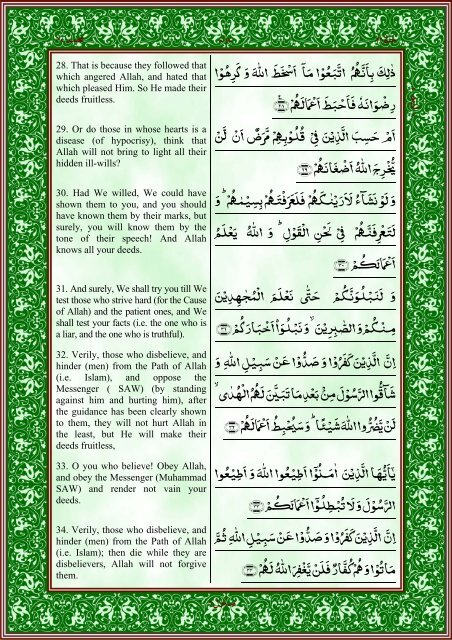 28. That is because they followed that
which angered Allah, and hated that
which pleased Him. So He made their
deeds fruitless.
ذٰلِكَ بِاَنَّهُمُ اتَّبَعُوْا مَاۤ اَسْخَطَ اللّٰهَ وَ كَرِهُوْا
رِضْوَانَهٗ فَاَحْبَطَ اَعْمَالَهُمْ ۟
29. Or do those in whose hearts is a
disease (of hypocrisy), think that
Allah will not bring to light all their
hidden ill-wills?
اَمْ حَسِبَ الَّذِيْنَ فِيْ قُلُوْبِهِمْ مَّرَضٌ اَنْ لَّنْ
يُّخْرِجَ اللّٰهُ اَضْغَانَهُمْ ۟
30. Had We willed, We could have
shown them to you, and you should
have known them by their marks, but
surely, you will know them by the
tone of their speech! And Allah
knows all your deeds.
وَ لَوْ نَشَآءُ لَاَرَيْنٰكَهُمْ فَلَعَرَفْتَهُمْ بِسِيْمٰهُمْ ؕ وَ
لَتَعْرِفَنَّهُمْ فِيْ لَحْنِ الْقَوْلِ ؕ وَ اللّٰهُ يَعْلَمُ
اَعْمَالَكُمْ ۟
31. And surely, We shall try you till We
test those who strive hard (for the Cause
of Allah) and the patient ones, and We
shall test your facts (i.e. the one who is
a liar, and the one who is truthful).
وَ لَنَبْلُوَنَّكُمْ حَتّٰى نَعْلَمَ الْمُجٰهِدِيْنَ
مِنْكُمْ وَ الصّٰبِرِيْنَ ۙ وَ نَبْلُوَا۠ اَخْبَارَكُمْ ۟
32. Verily, those who disbelieve, and
hinder (men) from the Path of Allah
(i.e. Islam), and oppose the
Messenger ( SAW) (by standing
against him and hurting him), after
the guidance has been clearly shown
to them, they will not hurt Allah in
the least, but He will make their
deeds fruitless,
اِنَّ الَّذِيْنَ كَفَرُوْا وَ صَدُّوْا عَنْ سَبِيْلِ اللّٰهِ وَ
شَآقُّوا الرَّسُوْلَ مِنْۢ بَعْدِ مَا تَبَيَّنَ لَهُمُ الْهُدٰى ۙ
لَنْ يَّضُرُّوا اللّٰهَ شَيْـًٔا ؕ وَ سَيُحْبِطُ اَعْمَالَهُمْ ۟
33. O you who believe! Obey Allah,
and obey the Messenger (Muhammad
SAW) and render not vain your
deeds.
يٰۤاَيُّهَا الَّذِيْنَ اٰمَنُوْۤا اَطِيْعُوا اللّٰهَ وَ اَطِيْعُوا
الرَّسُوْلَ وَ لَا تُبْطِلُوْۤا اَعْمَالَكُمْ ۟
34. Verily, those who disbelieve, and
hinder (men) from the Path of Allah
(i.e. Islam); then die while they are
disbelievers, Allah will not forgive
them.
اِنَّ الَّذِيْنَ كَفَرُوْا وَ صَدُّوْا عَنْ سَبِيْلِ اللّٰهِ ثُمَّ
مَاتُوْا وَ هُمْ كُفَّارٌ فَلَنْ يَّغْفِرَ اللّٰهُ لَهُمْ ۟